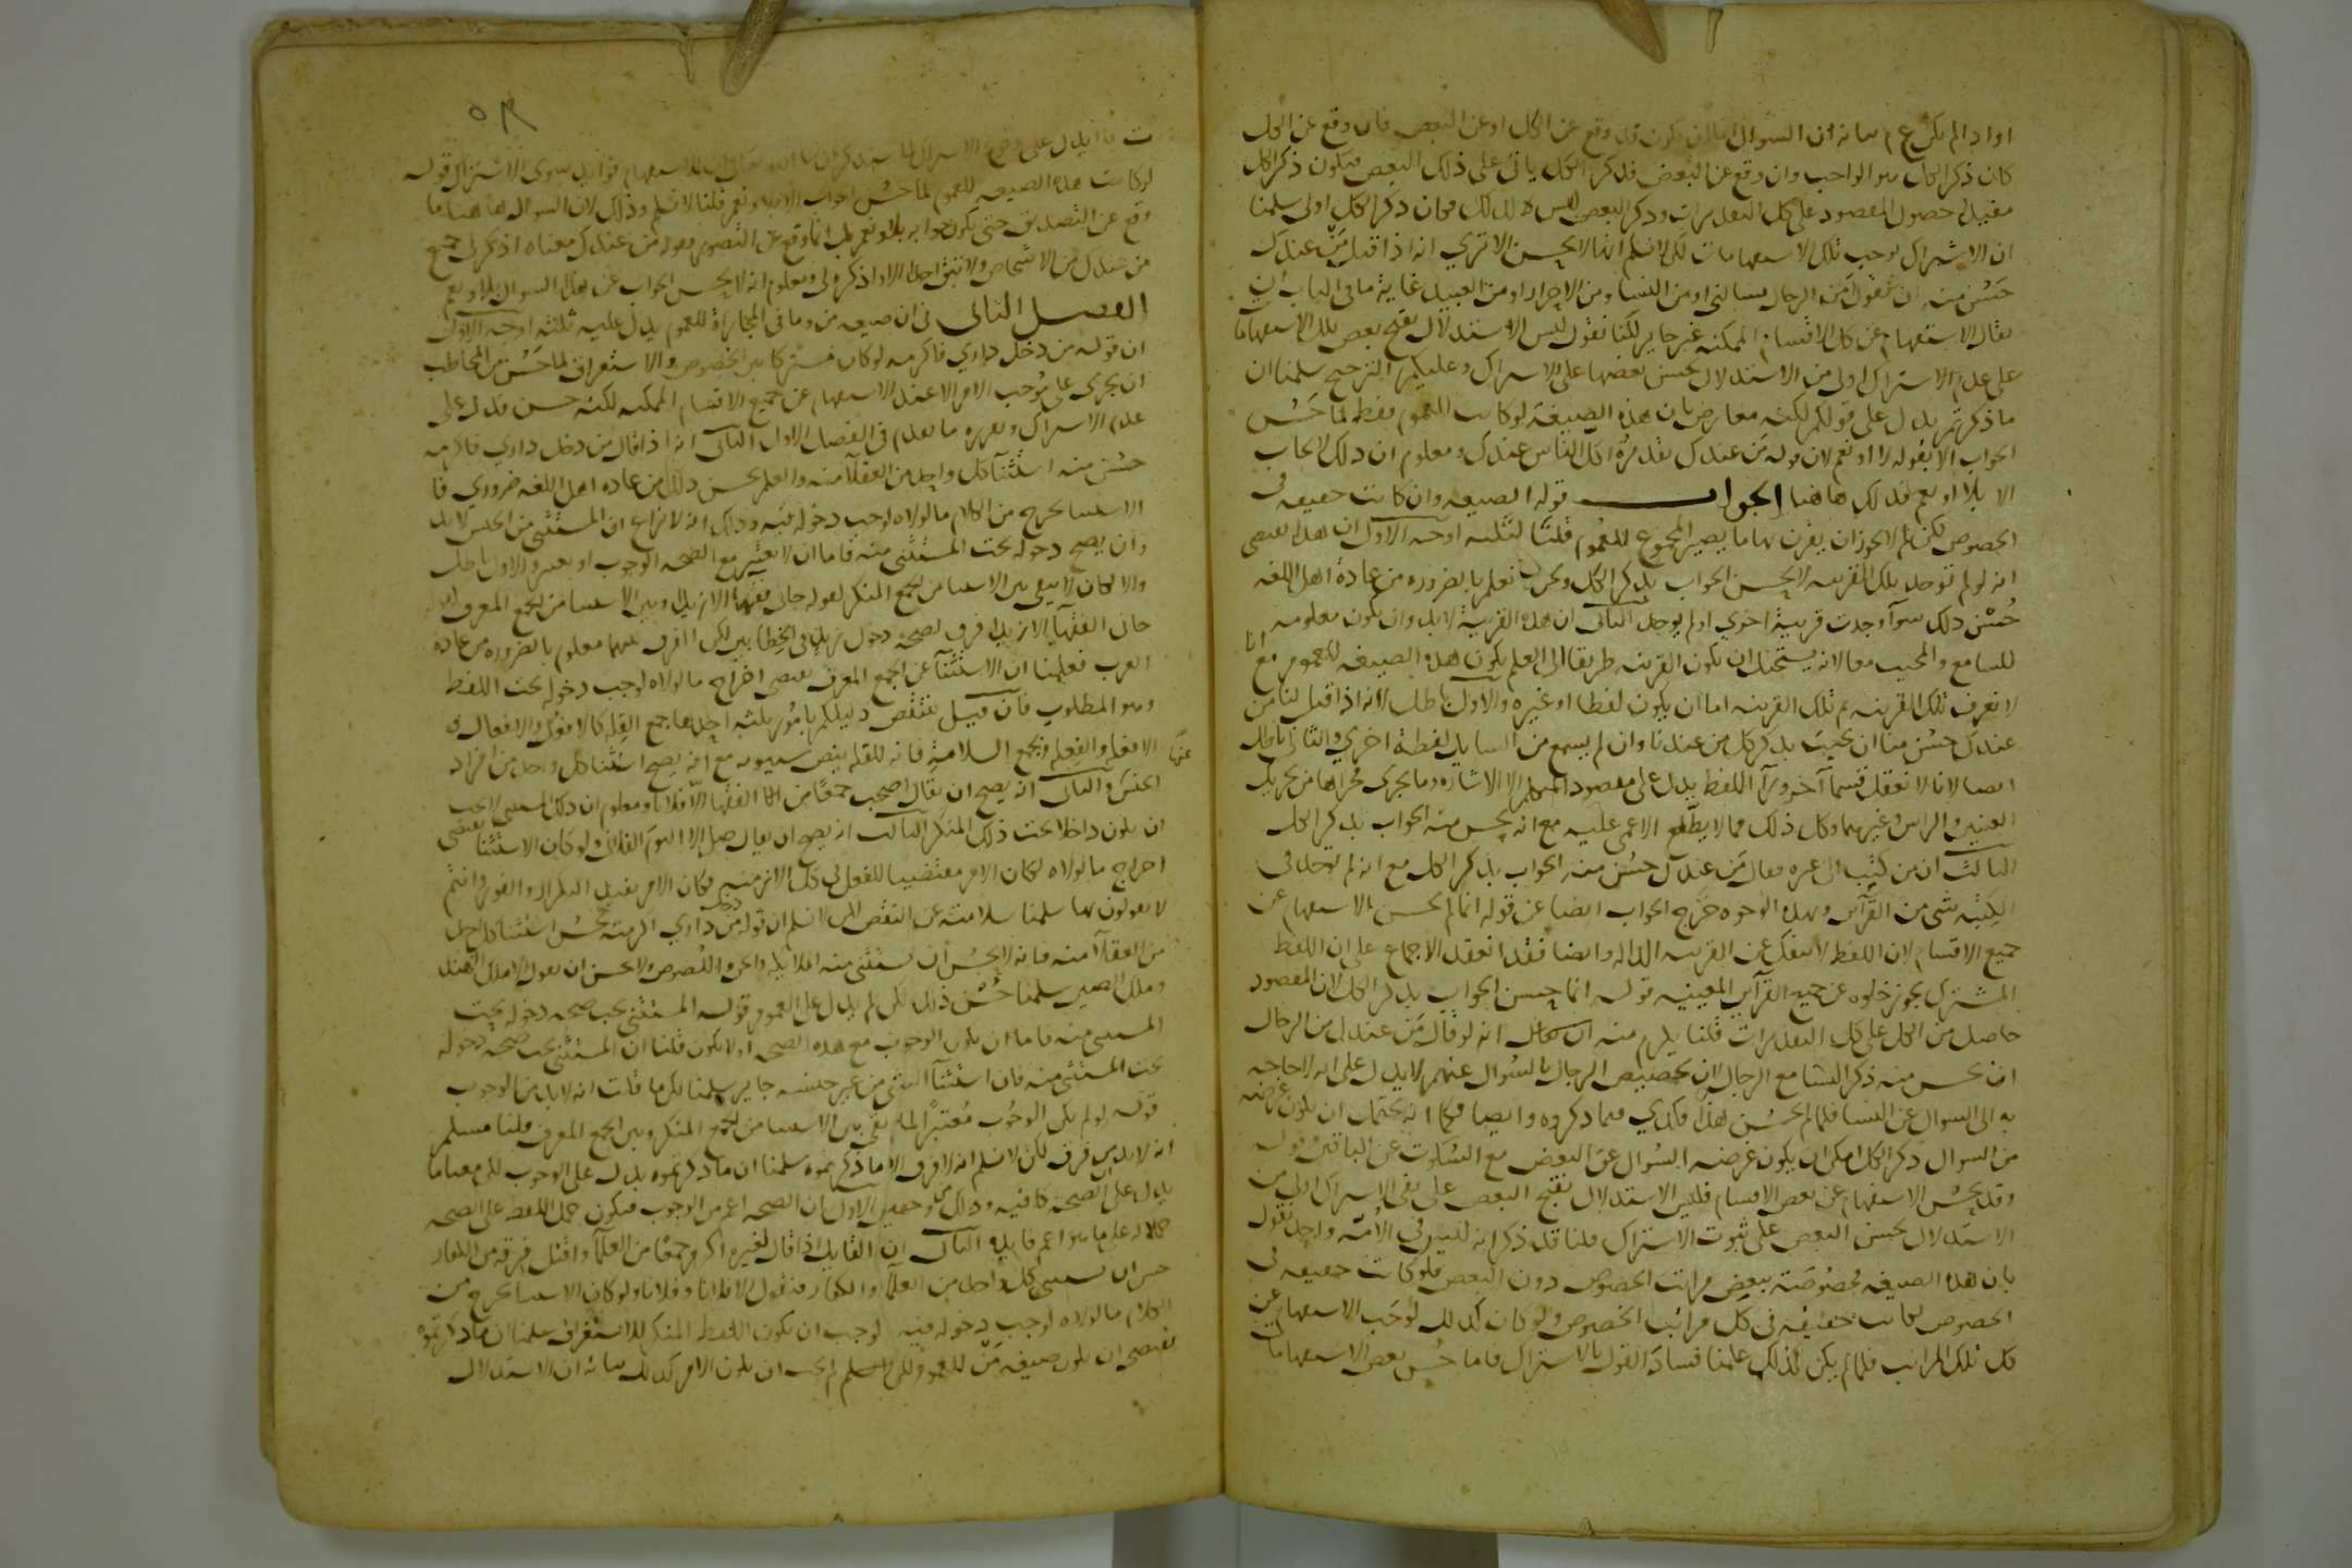 او اذا لم يكن ع م بيانه ان السوال اما ان يكون قد وقع عن الكل او عن البعض فان وقع عن الكل
كان ذكر الكل هو الواجب وان وقع عن البعض فذكر الكل ياتي على ذلك البعض فيكون ذكر الكل
مفيدا حصول المقصود على كل التقديرات وذكر البعض ليس كذلك فكان ذكر الكل اولى سلمنا
ان الاشتراك يوجب تلك الاستفهامات لكن لا نسلم انها لا تحسن الا ترى انه اذا قيل من عندك
حسن منه ان تقول من الرجال تسالني او من النسا ومن الاحرار او من العبيد غاية ما في الباب ان
يقال الاستفهام عن كل الاقسام الممكنة غير جايز لكنا نقول ليس الاستدلال بقبح بعض تلك الاستفهامات
على عدم الاشتراك اولى من الاستدلال بحسن بعضها على الاشتراك وعليكم الترجيح سلمنا ان
ما ذكرتم يدل على قولكم لكنه معارض بان هذه الصيغة لو كانت للعموم فقط لما حسن
الجواب الا بقوله لا او نعم لان قوله من عندك تقديره اكل الناس عندك ومعلوم ان ذلك لا يجاب
الا بلا او نعم فكذلك هاهنا الجواب قوله الصيغة وان كانت حقيقة في
الخصوص لكن لم لا يجوز ان يقترن بها ما يصير المجموع للعموم قلنا لثلثة اوجه الاول ان هذا يقتضي
انه لو لم توجد تلك القرينة لا يحسن الجواب بذكر الكل ونحن نعلم بالضرورة من عادة اهل اللغة
حسن ذلك سوآ وجدت قرينة اخرى او لم يوجد الثاني ان هذه القرينة لابد وان تكون معلومة
للسامع والمجيب معا لانه يستحيل ان تكون القرينة طريقا الى العلم بكون هذه الصيغة للعموم مع انا
لا نعرف تلك القرينة ثم تلك القرينة اما ان يكون لفظا او غيره والاول باطل لانه اذا قيل لنا من
عندك حسن منا ان نجيب بذكر كل من عندنا وان لم يسمع من السايل لفظة اخرى والثاني باطل
ايضا لانا لا نعقل قسما آخر ورآ اللفظ يدل على مقصود المتكلم الا الاشارة وما يجري مجراها من تحريك
العينين والراس وغيرهما وكل ذلك مما لا يطلع الاعمى عليه مع انه يحسن منه الجواب بذكر الكل
الثالث ان من كتب الى غيره فقال من عندك حسن منه الجواب بذكر الكل مع انه لم توجد في
الكتبة شي من القرآين وبهذه الوجوه خرج الجواب ايضا عن قوله انما لم يحسن الاستفهام عن
جميع الاقسام لان اللفظ لا ينفك عن القرينة الدالة وايضا فقد انعقد الاجماع على ان اللفظ
المشترك يجوز خلوه عن جميع القرآين المعينة قوله انما حسن الجواب بذكر الكل لان المقصود
حاصل من الكل على كل التقديرات قلنا يلزم منه انه لو قال من عندك من الرجال
ان يحسن منه ذكر النسا مع الرجال لان تخصيص الرجال بالسوال عنهم لا يدل على انه لا حاجة
به الى السوال عن النسا فلما لم يحسن هذا فكذى فيما ذكروه وايضا فكما انه يحتمل ان يكون غرضه
من السوال ذكر الكل امكن ان يكون غرضه السوال عن البعض مع السكوت عن الباقين قوله
وقد يحسن الاستفهام عن بعض الاقسام فليس الاستدلال بقبح البعض على نفي الاشتراك اولى من
الاستدلال بحسن البعض على ثبوت الاشتراك قلنا قد ذكر انه ليس في الامة واحد يقول
بان هذه الصيغة مخصوصة ببعض مراتب الخصوص دون البعض فلو كانت حقيقة في
الخصوص لكانت حقيقة في كل مراتب الخصوص ولو كان كذلك لوجب الاستفهام عن
كل تلك المراتب فلما لم يكن كذلك علمنا فساد القول بالاشتراك فاما حسن بعض الاستفهامات
لا يدل على وقوع الاشتراك لما سنذكر ان شا الله تعالى ان للاستفهام فوايد سوى الاشتراك قوله
لو كانت هذه الصيغة للعموم لما حسن الجواب الا بلا او نعم قلنا لا نسلم وذلك لان السوال هاهنا ما
وقع عن التصديق حتى يكون جوابه بلا او نعم بل انما وقع عن التصور فقوله من عندك معناه اذكر لي جميع
من عندك من الاشخاص ولا تبق احدا الا واذكره لي ومعلوم انه لا يحسن الجواب عن هذا السوال بلا او نعم
الفصل الثاني في ان صيغة من وما في المجازاة للعموم يدل عليه ثلثة اوجه الاول
ان قوله من دخل داري فاكرمه لو كان مشتركا بين الخصوص والاستغراق لما حسن من المخاطب
ان يجري على موجب الامر الا عند الاستفهام عن جميع الاقسام الممكنة لكنه حسن فدل على
عدم الاشتراك وتقريره ما تقدم في الفصل الاول الثاني انه اذا قال من دخل داري فاكرمه
حسن منه استثنآ كل واحد من العقلآ منه والعلم بحسن ذلك من عادة اهل اللغة ضروري فا
الاستثنا يخرج من الكلام ما لولاه لوجب دخوله فيه وذلك انه لا نزاع ان المستثنى من الجنس لابد
وان يصح دخوله تحت المستثنى منه فاما ان لا يعتبر مع الصحة الوجوب او يعتبر والاول باطل
والا لكان لا يبقى بين الاستثنا من الجمع المنكر لقوله جاني فقهآ الا زيدا وبين الاستثنا من الجمع المعرف
جاني الفقهآ الا زيدا فرق لصحة دخول زيد في الخطابين لكن الفرق بينهما معلوم بالضرورة من عادة
العرب فعلمنا ان الاستثنآ عن الجمع المعرف يقتضي اخراج ما لولاه لوجب دخوله تحت اللفظ
وهو المطلوب فان قيل ينتقض دليلكم بامور ثلثة احدها جمع القلة كالافعل والافعال و
الافعلة والفعلة وجمع السلامة فانه للقلة بنص سيبويه مع انه يصح استثنآ كل واحد من افراد
الجنس والثاني انه يصح ان يقال اصحب جمعا من الفقها الا فلانا ومعلوم ان ذلك المستثنى لا يجب
ان يكون داخلا تحت ذلك المنكر الثالث انه يصح ان يقال صل الا اليوم الفلاني ولو كان الاستثنا يقتضي
اخراج ما لولاه لكان الامر مقتضيا للفعل في كل الازمنة فكان الامر يفيد التكرار والفور وانتم
لا تقولون بهما سلمنا سلامته عن النقض لكن لا نسلم ان قوله من دخل داري اكرمته يحسن استثنا كل واحد
من العقلآ منه فانه لا يحسن ان يستثنى منه الملايكة والجن واللصوص ولا يحسن ان يقول الا ملك الهند
وملك الصين سلمنا حسن ذلك لكن لم يدل على العموم قوله المستثنى يجب صحة دخوله تحت
المستثنى منه فاما ان يكون الوجوب مع هذه الصحة او لا يكون قلنا ان المستثنى يجب صحة دخوله
تحت المستثنى منه فان استثنآ الشي من غير جنسه جايز سلمنا لكن ما قلت انه لابد من الوجوب
قوله لو لم يكن الوجوب معتبرا لما بقي بين الاستثنا من الجمع المنكر وبين الجمع المعرف قلنا مسلم
انه لابد من فرق لكن لا نسلم انه لا فرق الا ما ذكرتموه سلمنا ان ما ذكرتموه يدل على الوجوب لكن معنا ما
يدل على ان الصحة كافية وذلك من وجهين الاول ان الصحة اعم من الوجوب فيكون حمل اللفظ على الصحة
حملا له على ما هو اعم فايدة الثاني ان القايل اذا قال لغيره اكرم جمعا من العلمآ واقتل فرقة من الكفار
حسن ان يستثنى كل واحد من العلمآ والكفار فيقول الا فلانا وفلانا ولو كان الاستثنا يخرج من
الكلام ما لولاه لوجب دخوله فيه لوجب ان يكون اللفظ المنكر للاستغراق سلمنا ان ما ذكرتموه
يقتضي ان يكون صيغة من للعموم لكن لم يجب ان يكون الامر كذلك بيانه ان الاستدلال